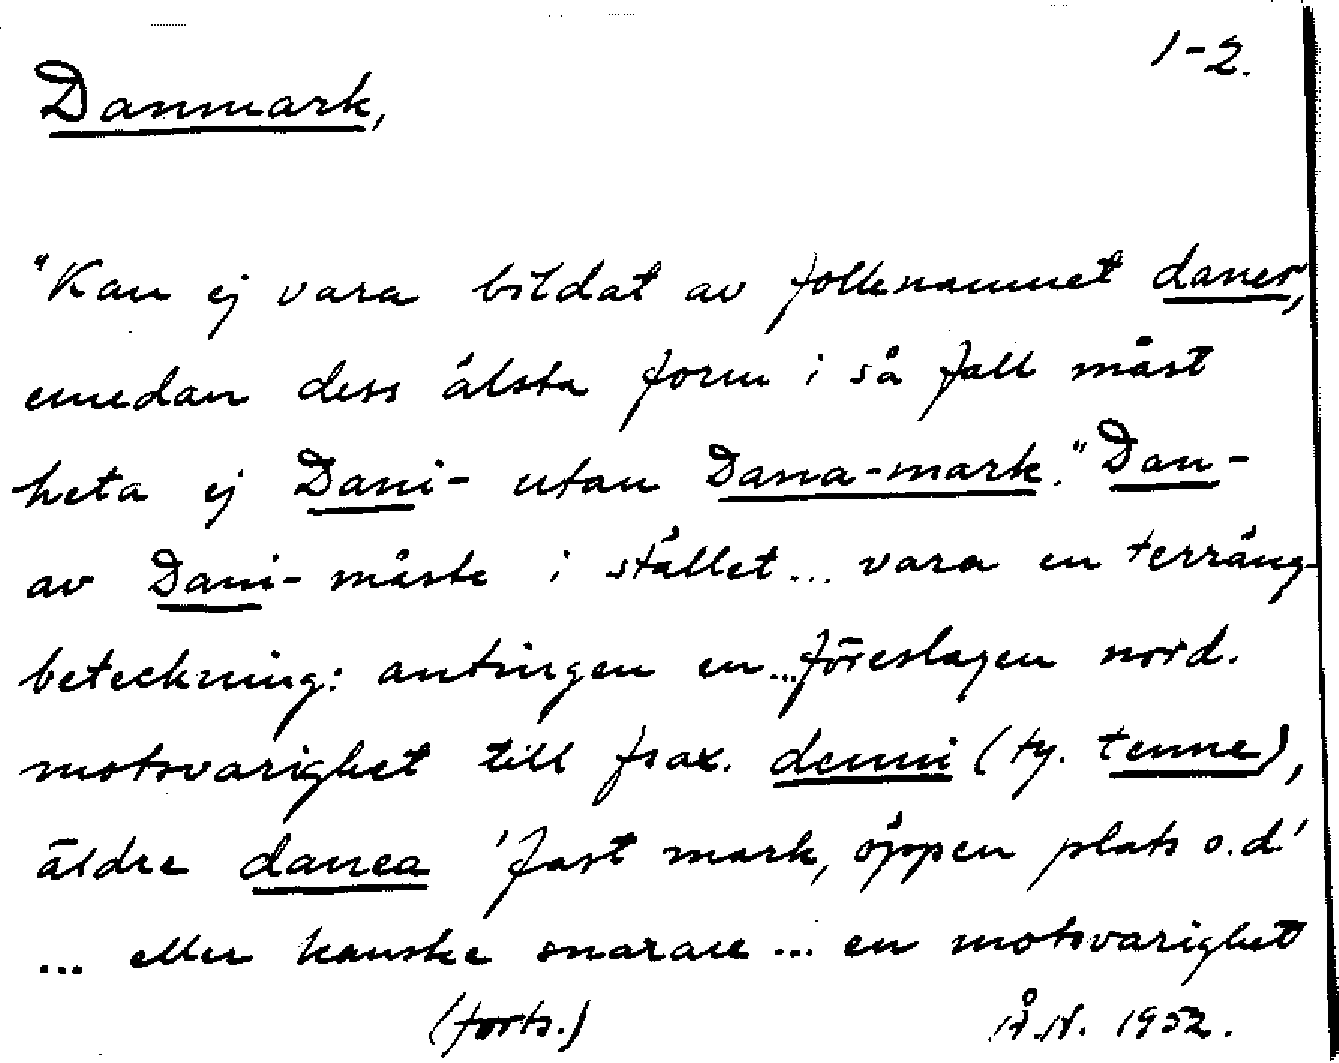 1-2.
Danmark,
"Kan ej vara bildat av folknamnet daner,
emedan dess älsta form i så fall måst
heta ej Dani- utan Dana-mark." Dan-
av Dani- måste i stället... vara en terräng-
beteckning: antingen en... föreslagen nord.
motsvarighet till frax. denni (ty. tenne),
äldre danea 'fast mark, öppen plats o.d.'
... eller kanske snarare ... en motsvarighet
(forts.) Å.N. 1952.